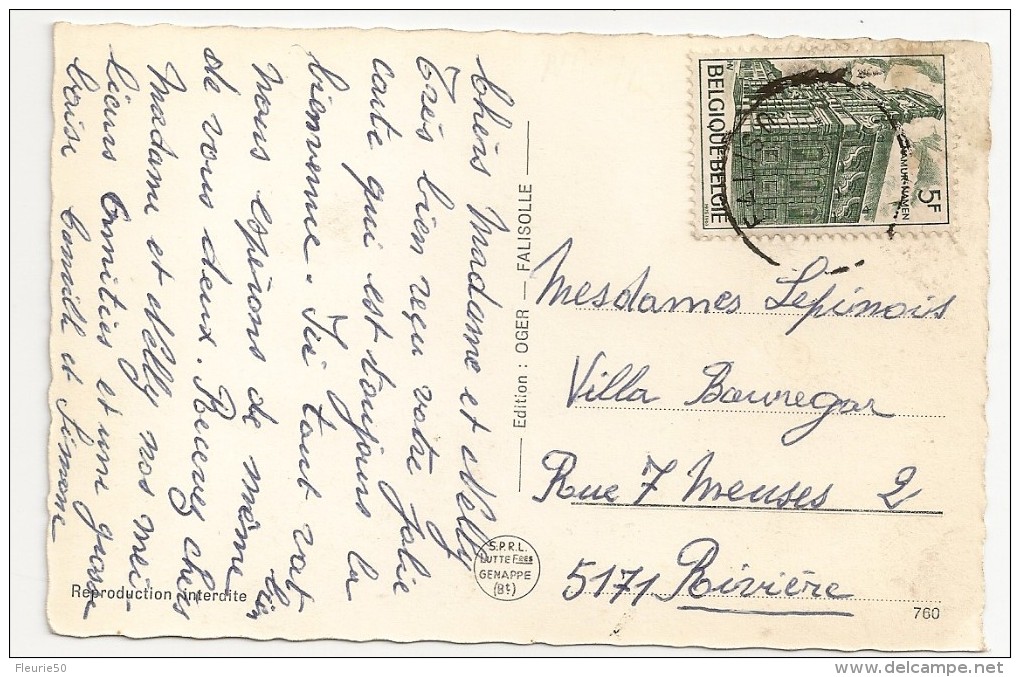 Chers Madame et Nelly
Très bien reçu votre Jolie
carte qui est toujours la
bienvenue. Ici tout vat
Nous espérons de même
de vous deux. Recevez chers
Madame et Nelly nos meil-
lieurs Amitiés et une grosse
baise Camille et Simone
Edition : OGER — FALISOLLE
BELGIQUE-BELGIE
NAMUR-NAMEN
5F
Mesdames Lepinois
Villa Bauregar
Rue 7 Meuses 2
5171 Rivière
S.P.R.L.
LUTTE Frès
GENAPPE
(Bt)
Reproduction interdite
760
Fleurie50
delcampe.net